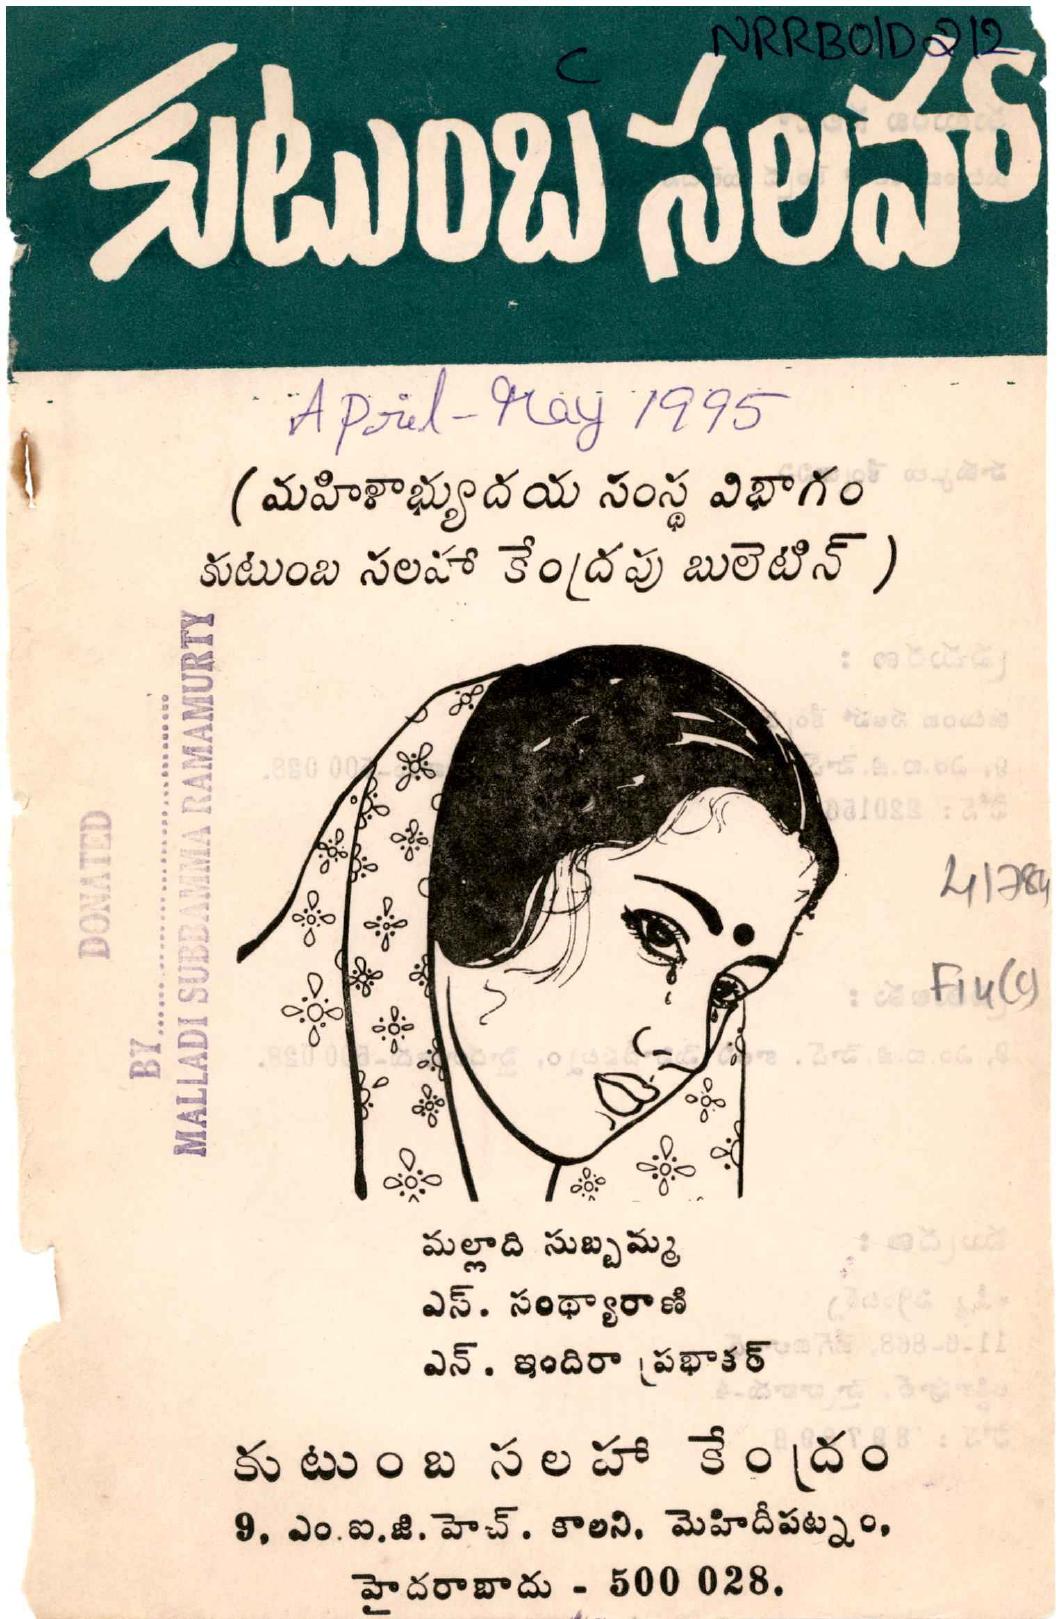 NRRBO/D212
C
కుటుంబ సలహా
April-May 1995
(మహిళాభ్యుదయ సంస్థ విభాగం
కుటుంబ సలహా కేంద్రపు బులెటిన్)
DONATED
BY..............................
MALLADI SUBBAMMA RAMAMURTY
మల్లాది సుబ్బమ్మ
ఎస్. సంధ్యారాణి
ఎన్. ఇందిరా ప్రభాకర్
కుటుంబ సలహా కేంద్రం
9, ఎం.ఐ.జి.హెచ్. కాలని, మెహిదీపట్నం,
హైదరాబాదు - 500 028.